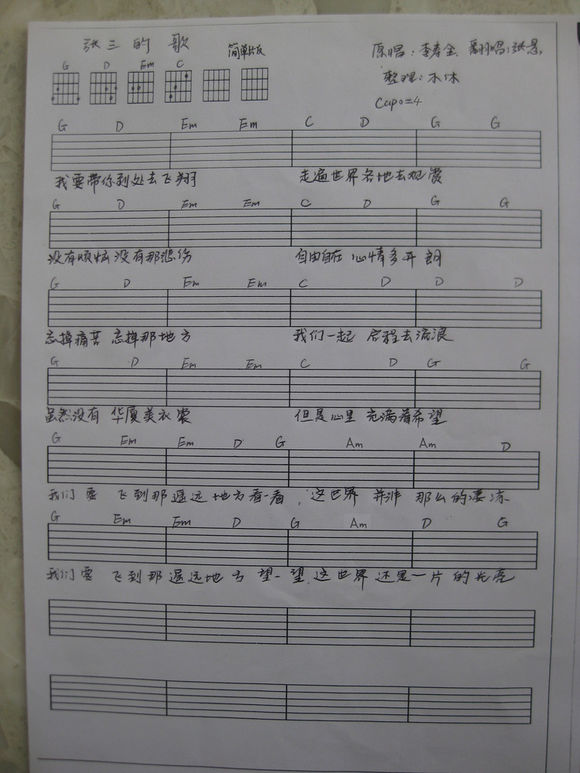 张三的歌 简单版 原唱：李寿全 翻唱：张悬
整理：木木
G D Em C
Capo=4
G D Em Em C D G G
我要带你到处去飞翔 走遍世界各地去观赏
G D Em Em C D G G
没有烦恼没有那悲伤 自由自在 心情多开朗
G D Em Em C D D D
忘掉痛苦 忘掉那地方 我们一起 启程去流浪
G D Em Em C D G G
虽然没有 华厦美衣裳 但是心里 充满着希望
G Em Em D G Am Am D
我们要 飞到那遥远地方看一看，这世界 并非 那么的凄凉
G Em Em D G Am D G
我们要 飞到那遥远地方 望一望，这世界 还是一片的光亮